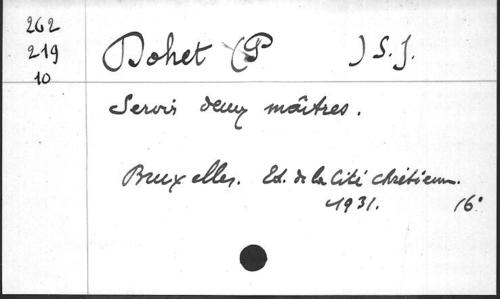 262
219
10
Dohet (P ) S.J.
Servir deux maîtres.
Bruxelles. Ed. de la Cité chrétienne.
1931. 16°